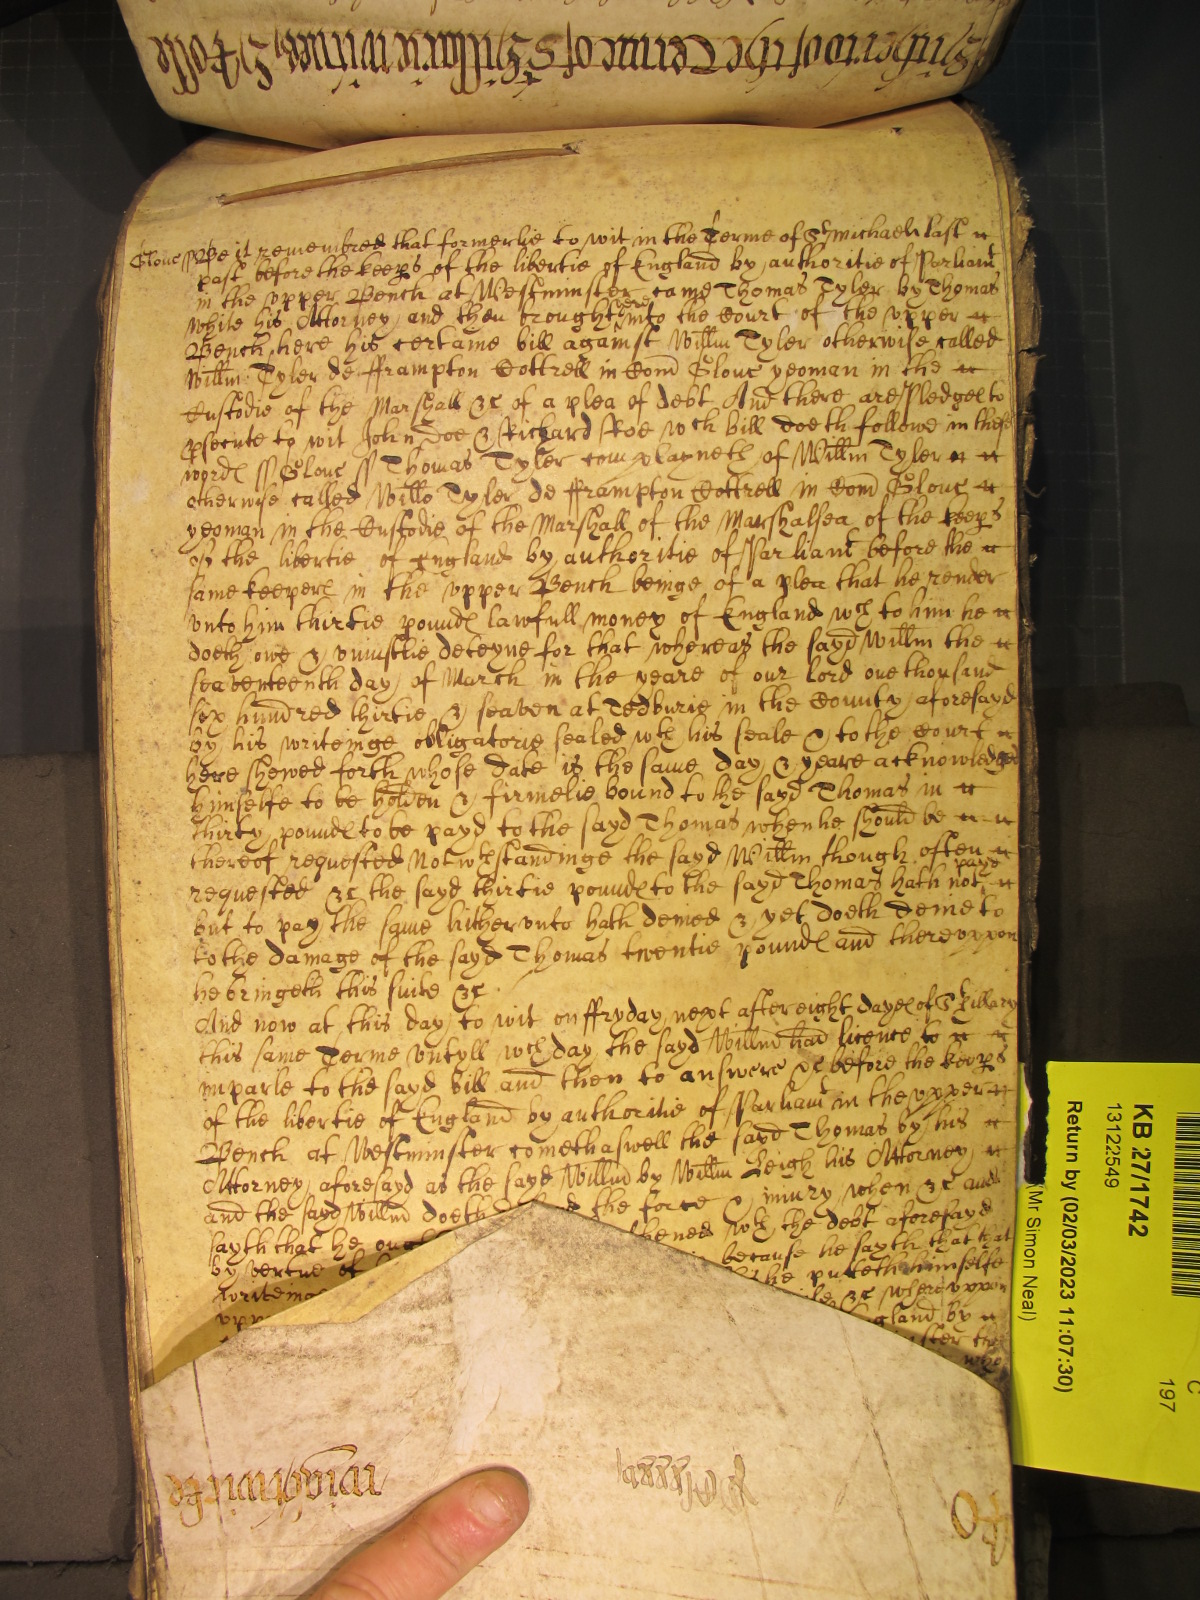 Glouc ss Be it remembred that formerlie to wit in the Terme of St Michaell last
past before the keeps of the libertie of England by authoritie of Parliamt
in the vpper Bench at Westminster came Thomas Tyler by Thomas
White his Attorney and then brought here into the Court of the vpper
Bench here his certaine bill against Willm Tyler otherwise called
Willm Tyler de fframpton Cottrell in Com Glouc yeoman in the
Custodie of the Marshall &c of a plea of debt And there are Pledges to
psecute to wit John Doe & Richard Roe wch bill doeth followe in these
words ss Glouc ss Thomas Tyler complayneth of Willm Tyler
otherwise called Willo Tyler de fframpton Cottrell in Com Glouc
yeoman in the Custodie of the Marshall of the Marshalsea of the keeps
of the libertie of England by authoritie of Parliamt before the
same keepers in the vpper Bench beinge of a plea that he render
vnto him thirtie pounds lawfull money of England wch to him he
doeth owe & vniustlie deteyne for that whereas the sayd Willm the
seaventeenth day of March in the yeare of our lord one thousand
six hundred thirtie & seaven at Tedburie in the County aforesayd
by his writeinge obligatorie sealed wth his seale & to the Court
here shewed forth whose date is the same day & yeare acknowledged
himselfe to be holden & firmelie bound to the sayd Thomas in
thirty pounds to be payd to the sayd Thomas when he should be
thereof requested Notwthstandinge the sayd Willm though often
requested &c the sayd thirtie pounds to the sayd Thomas hath not payd
but to pay the same hithervnto hath denied & yet doeth denie to
to the damage of the sayd Thomas twentie pounds and therevppon
he bringeth this suite &c
And now at this day to wit on ffryday next after eight dayes of St Hillary
this same Terme vntyll wch day the sayd Willm had licence to
imparle to the sayd bill and then to answere &c before the keeps
of the libertie of England by authoritie of Parliamt in the vpper
Bench at Westminster cometh aswell the sayd Thomas by his
Attorney aforesayd as the sayd Willm by Willm Leigh his Attorney
and the sayd Willm doeth the force & iniury when &c and
sayth that he wth the debt aforesayd
by vertue of because he sayth that that
he putteth himselfe
&c wherevppon
by
the
who
KB 27/1742
13122549
Return by (02/03/2023 11:07:30)
(Mr Simon Neal)
C
197